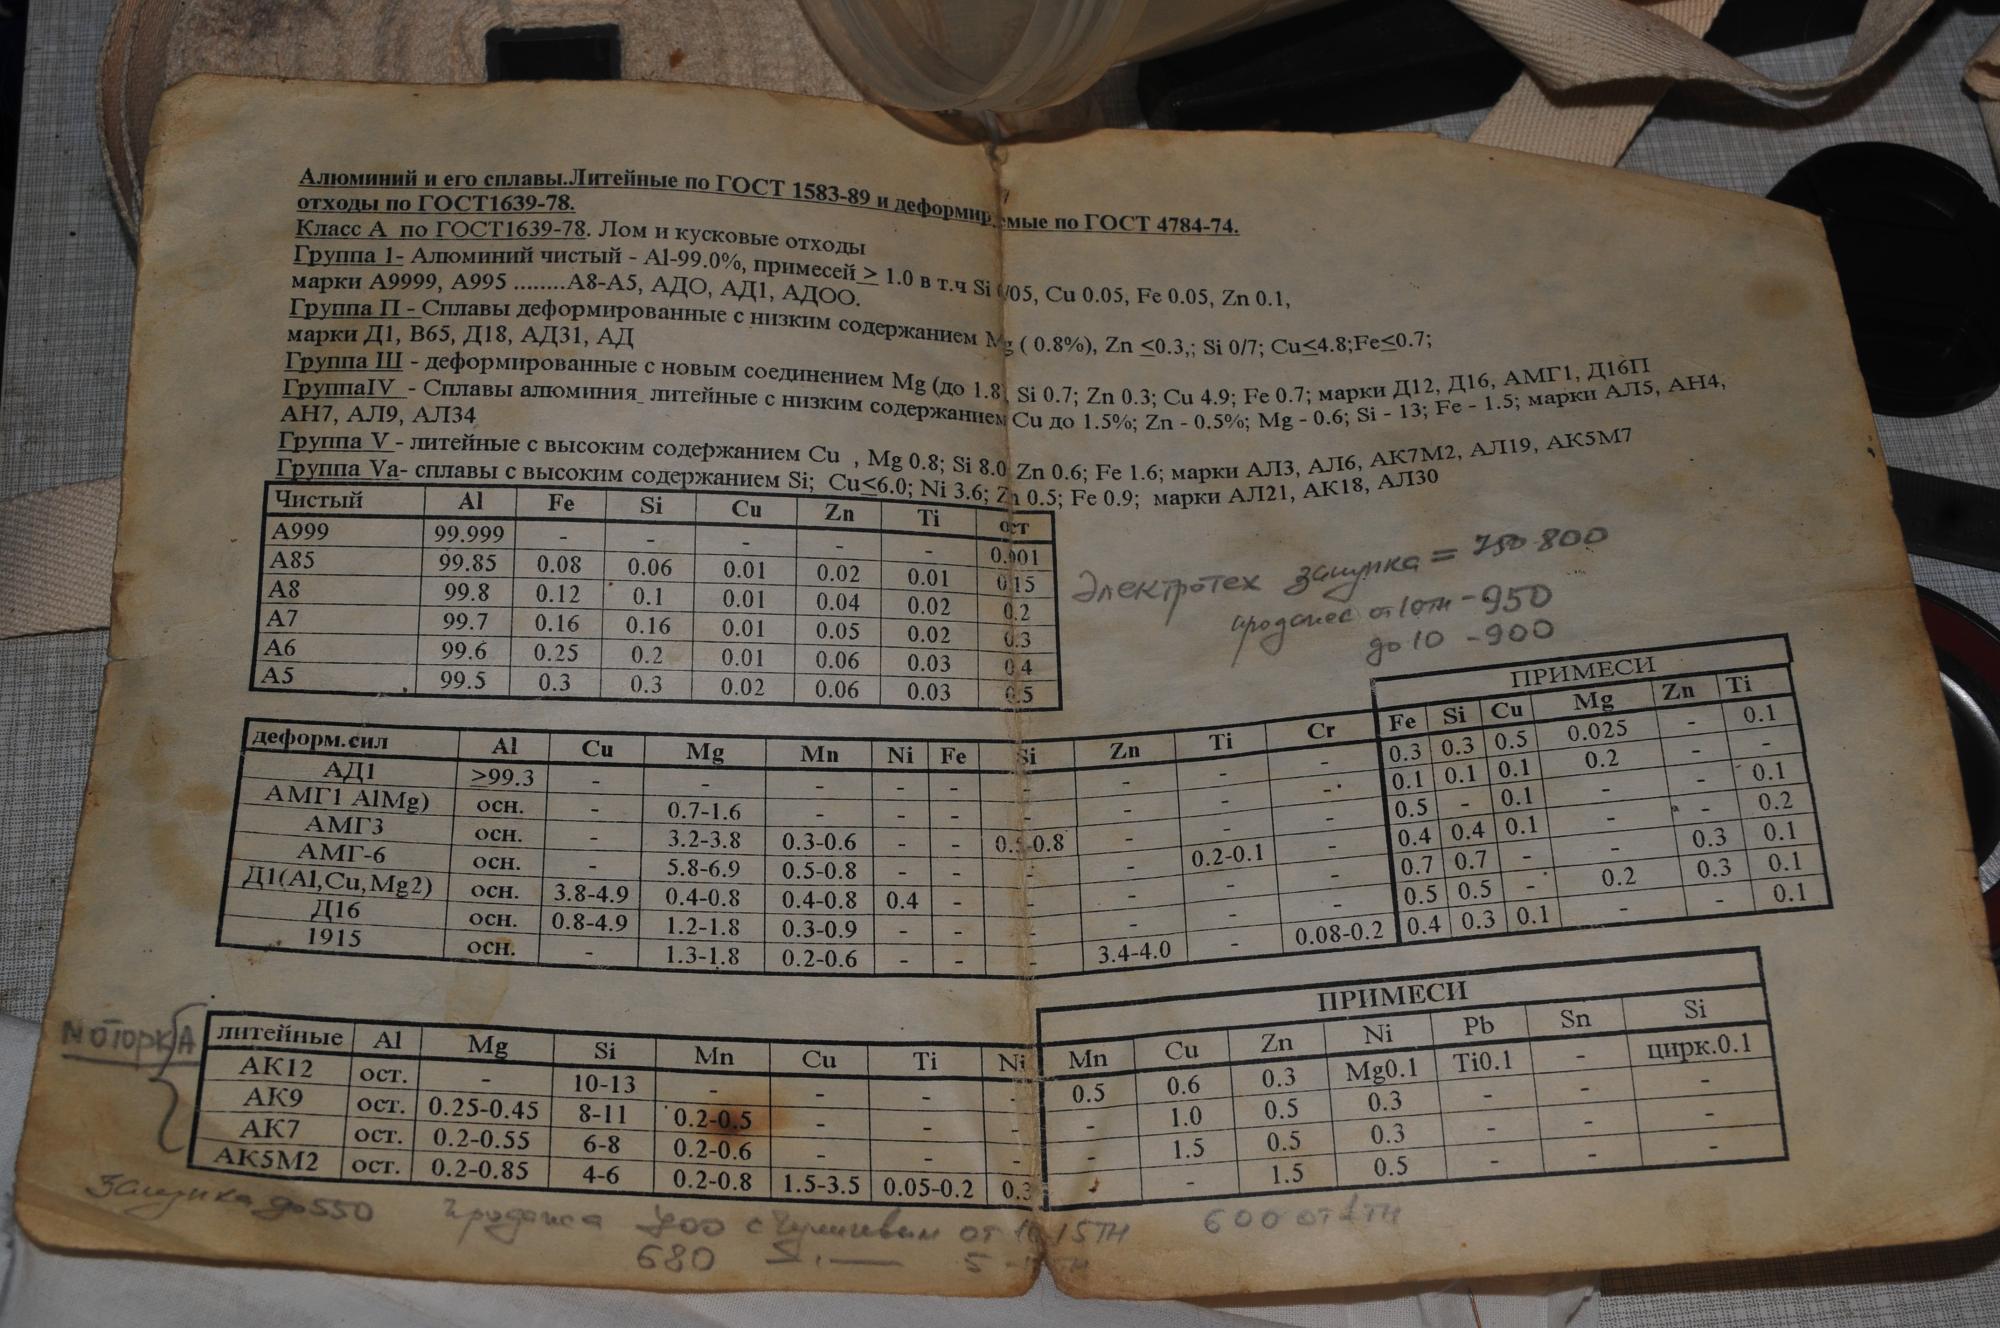 Алюминий и его сплавы.Литейные по ГОСТ 1583-89 и деформируемые по ГОСТ 4784-74.
отходы по ГОСТ1639-78.
Класс А по ГОСТ1639-78. Лом и кусковые отходы
Группа 1- Алюминий чистый - Al-99.0%, примесей ≥ 1.0 в т.ч Si 0/05, Cu 0.05, Fe 0.05, Zn 0.1,
марки А9999, А995 ........А8-А5, АДО, АД1, АДОО.
Группа П - Сплавы деформированные с низким содержанием Mg ( 0.8%), Zn ≤0.3,; Si 0/7; Cu≤4.8;Fe≤0.7;
марки Д1, В65, Д18, АД31, АД
Группа Ш - деформированные с новым соединением Mg (до 1.8) Si 0.7; Zn 0.3; Cu 4.9; Fe 0.7; марки Д12, Д16, АМГ1, Д16П
ГруппаIV - Сплавы алюминия литейные с низким содержанием Cu до 1.5%; Zn - 0.5%; Mg - 0.6; Si - 13; Fe - 1.5; марки АЛ5, АН4,
АН7, АЛ9, АЛ34
Группа V - литейные с высоким содержанием Cu , Mg 0.8; Si 8.0 Zn 0.6; Fe 1.6; марки АЛ3, АЛ6, АК7М2, АЛ19, АК5М7
Группа Va- сплавы с высоким содержанием Si; Cu≤6.0; Ni 3.6; Zn 0.5; Fe 0.9; марки АЛ21, АК18, АЛ30
Чистый Al Fe Si Cu Zn Ti ост
А999 99.999 - - - - - 0.001
А85 99.85 0.08 0.06 0.01 0.02 0.01 0.15
А8 99.8 0.12 0.1 0.01 0.04 0.02 0.2
А7 99.7 0.16 0.16 0.01 0.05 0.02 0.3
А6 99.6 0.25 0.2 0.01 0.06 0.03 0.4
А5 99.5 0.3 0.3 0.02 0.06 0.03 0.5
Электротех закупка = 750-800
продажа от 10тн - 950
до 10 - 900
ПРИМЕСИ
деформ.сил Al Cu Mg Mn Ni Fe Si Zn Ti Cr Fe Si Cu Mg Zn Ti
АД1 ≥99.3 - - - - - - - - - 0.3 0.3 0.5 0.025 - 0.1
АМГ1 AlMg) осн. - 0.7-1.6 - - - - - - - 0.1 0.1 0.1 0.2 - -
АМГ3 осн. - 3.2-3.8 0.3-0.6 - - 0.5-0.8 - - - 0.5 - 0.1 - - 0.1
АМГ-6 осн. - 5.8-6.9 0.5-0.8 - - - - 0.2-0.1 - 0.4 0.4 0.1 - - 0.2
Д1(Al,Cu,Mg2) осн. 3.8-4.9 0.4-0.8 0.4-0.8 0.4 - - - - - 0.7 0.7 - - 0.3 0.1
Д16 осн. 0.8-4.9 1.2-1.8 0.3-0.9 - - - - - - 0.5 0.5 - 0.2 0.3 0.1
1915 осн. - 1.3-1.8 0.2-0.6 - - - 3.4-4.0 - 0.08-0.2 0.4 0.3 0.1 - - 0.1
МОТОРКА
ПРИМЕСИ
литейные Al Mg Si Mn Cu Ti Ni Mn Cu Zn Ni Pb Sn Si
АК12 ост. - 10-13 - - - - 0.5 0.6 0.3 Mg0.1 Ti0.1 - цирк.0.1
АК9 ост. 0.25-0.45 8-11 0.2-0.5 - - - - 1.0 0.5 0.3 - - -
АК7 ост. 0.2-0.55 6-8 0.2-0.6 - - - - 1.5 0.5 0.3 - - -
АК5М2 ост. 0.2-0.85 4-6 0.2-0.8 1.5-3.5 0.05-0.2 0.3 - - 1.5 0.5 - - -
Закупка до 550 продажа 700 с от 15тн 600 от 1тн
680